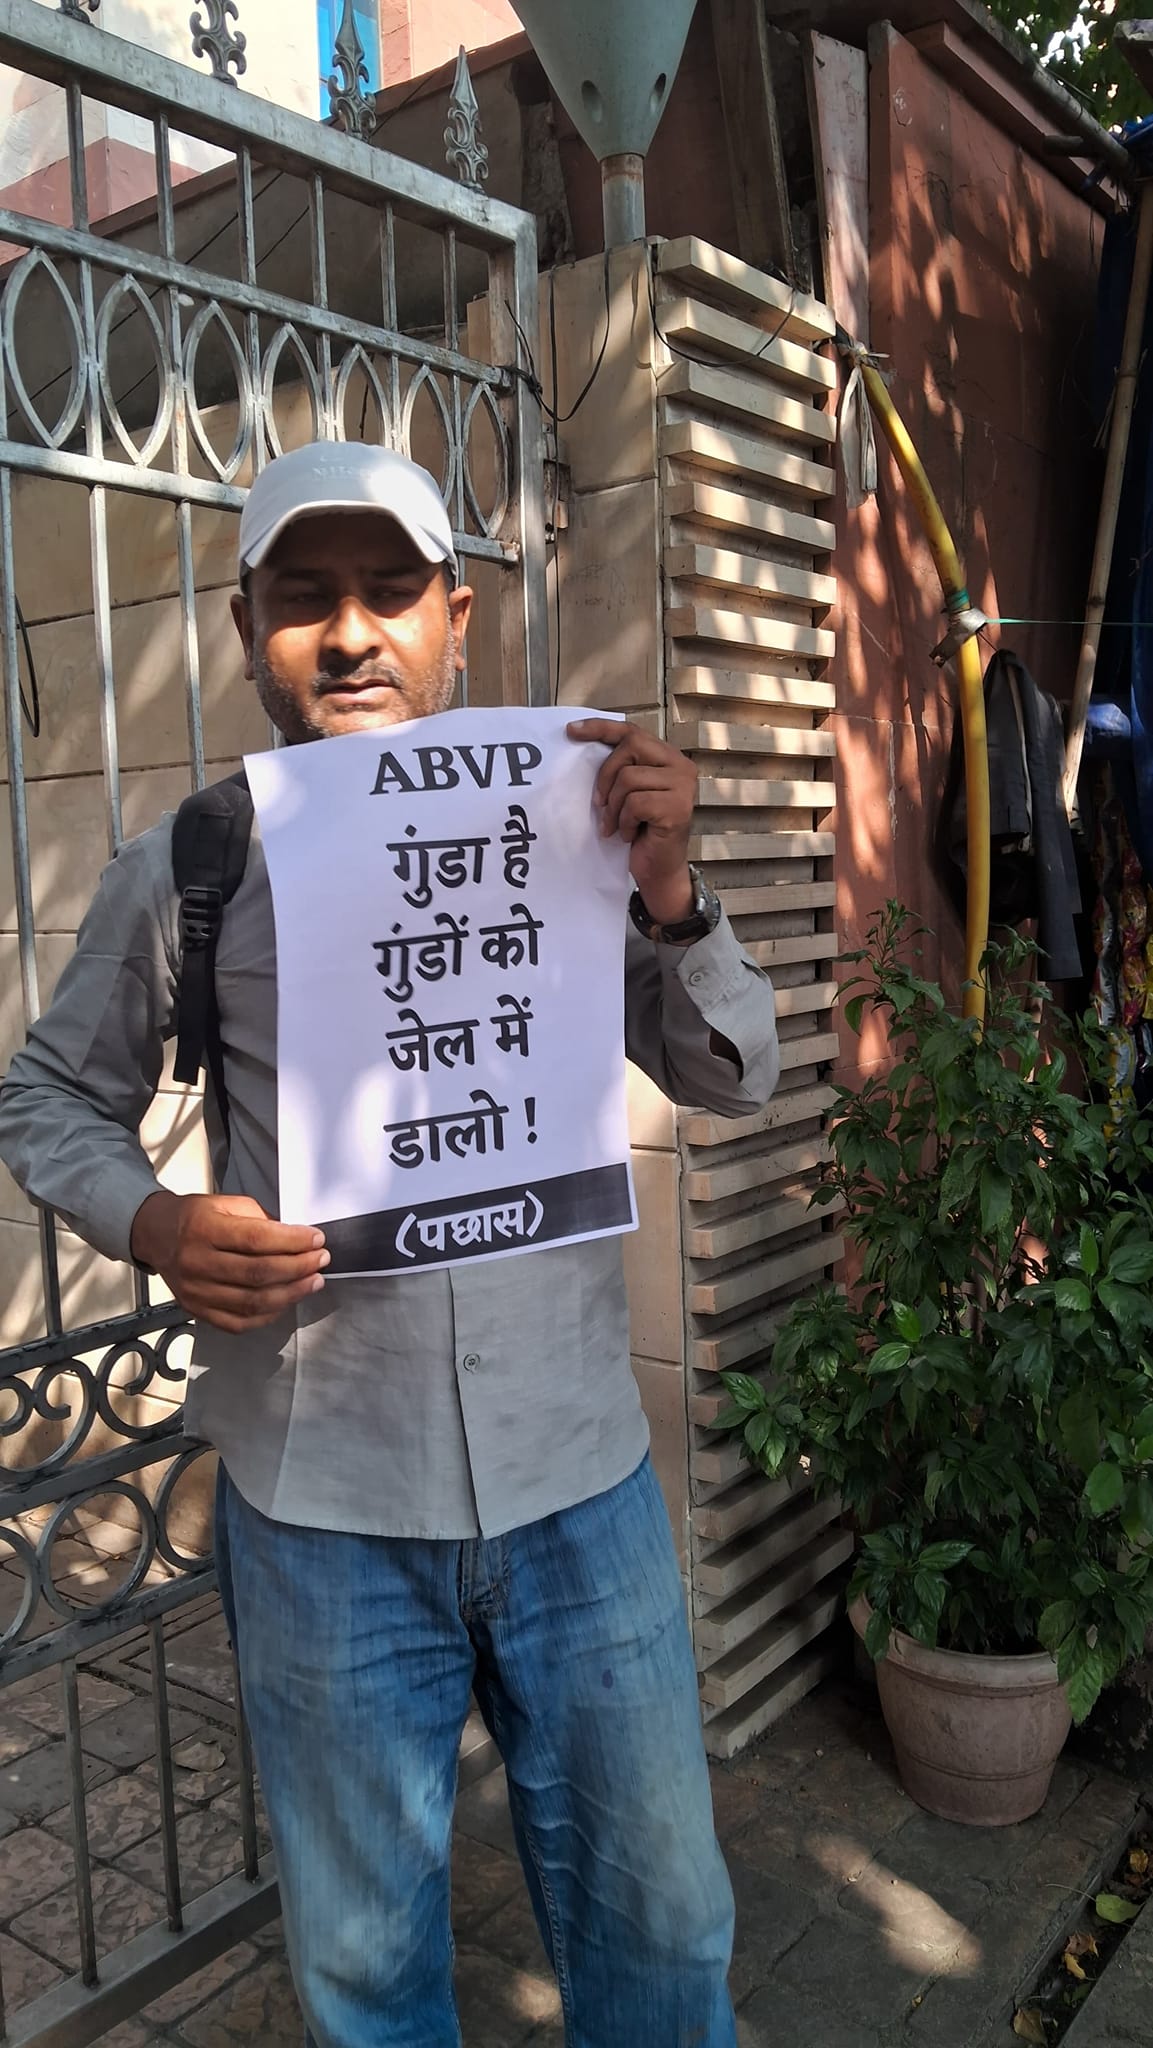 ABVP
गुंडा है
गुंडों को
जेल में
डालो !
(पछास)